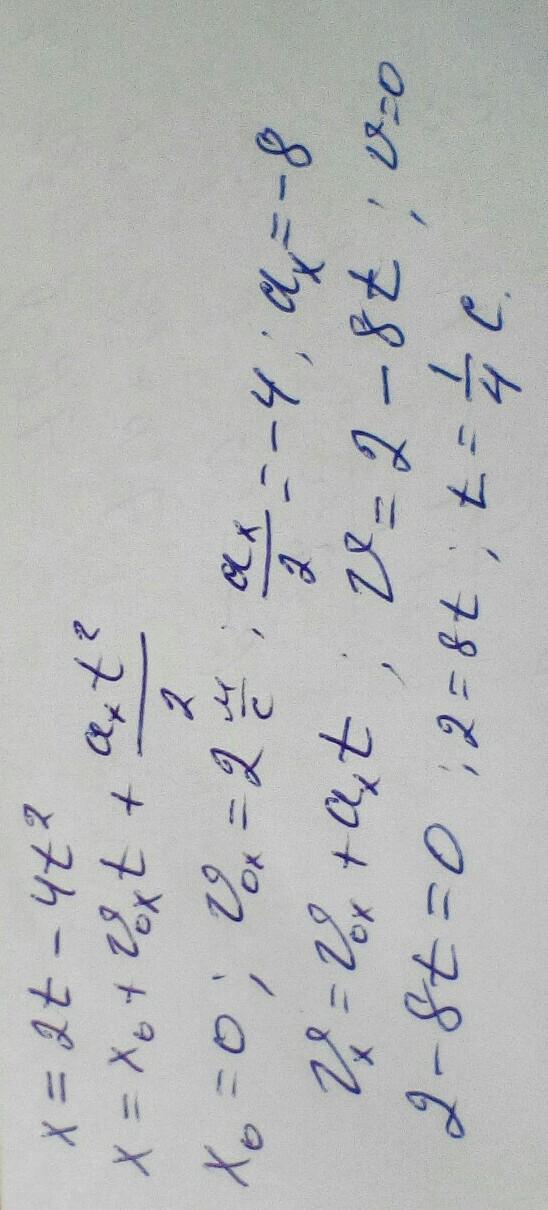 x = 2t - 4t²
x = x₀ + v₀ₓt + aₓt²/2
x₀ = 0; v₀ₓ = 2 м/с; aₓ/2 = -4; aₓ = -8
vₓ = v₀ₓ + aₓt; v = 2 - 8t; v = 0
2 - 8t = 0; 2 = 8t; t = 1/4 с.